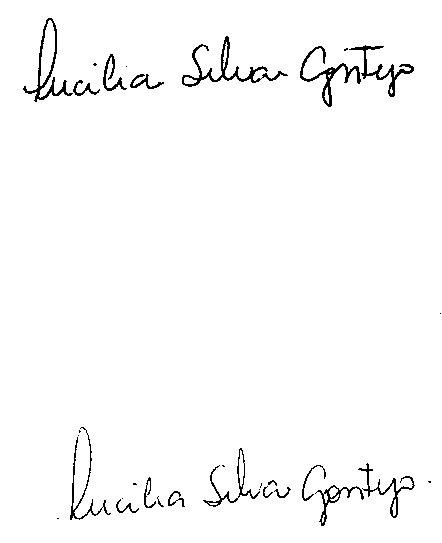 Lucilia Silva Gontijo
Lucilia Silva Gontijo.